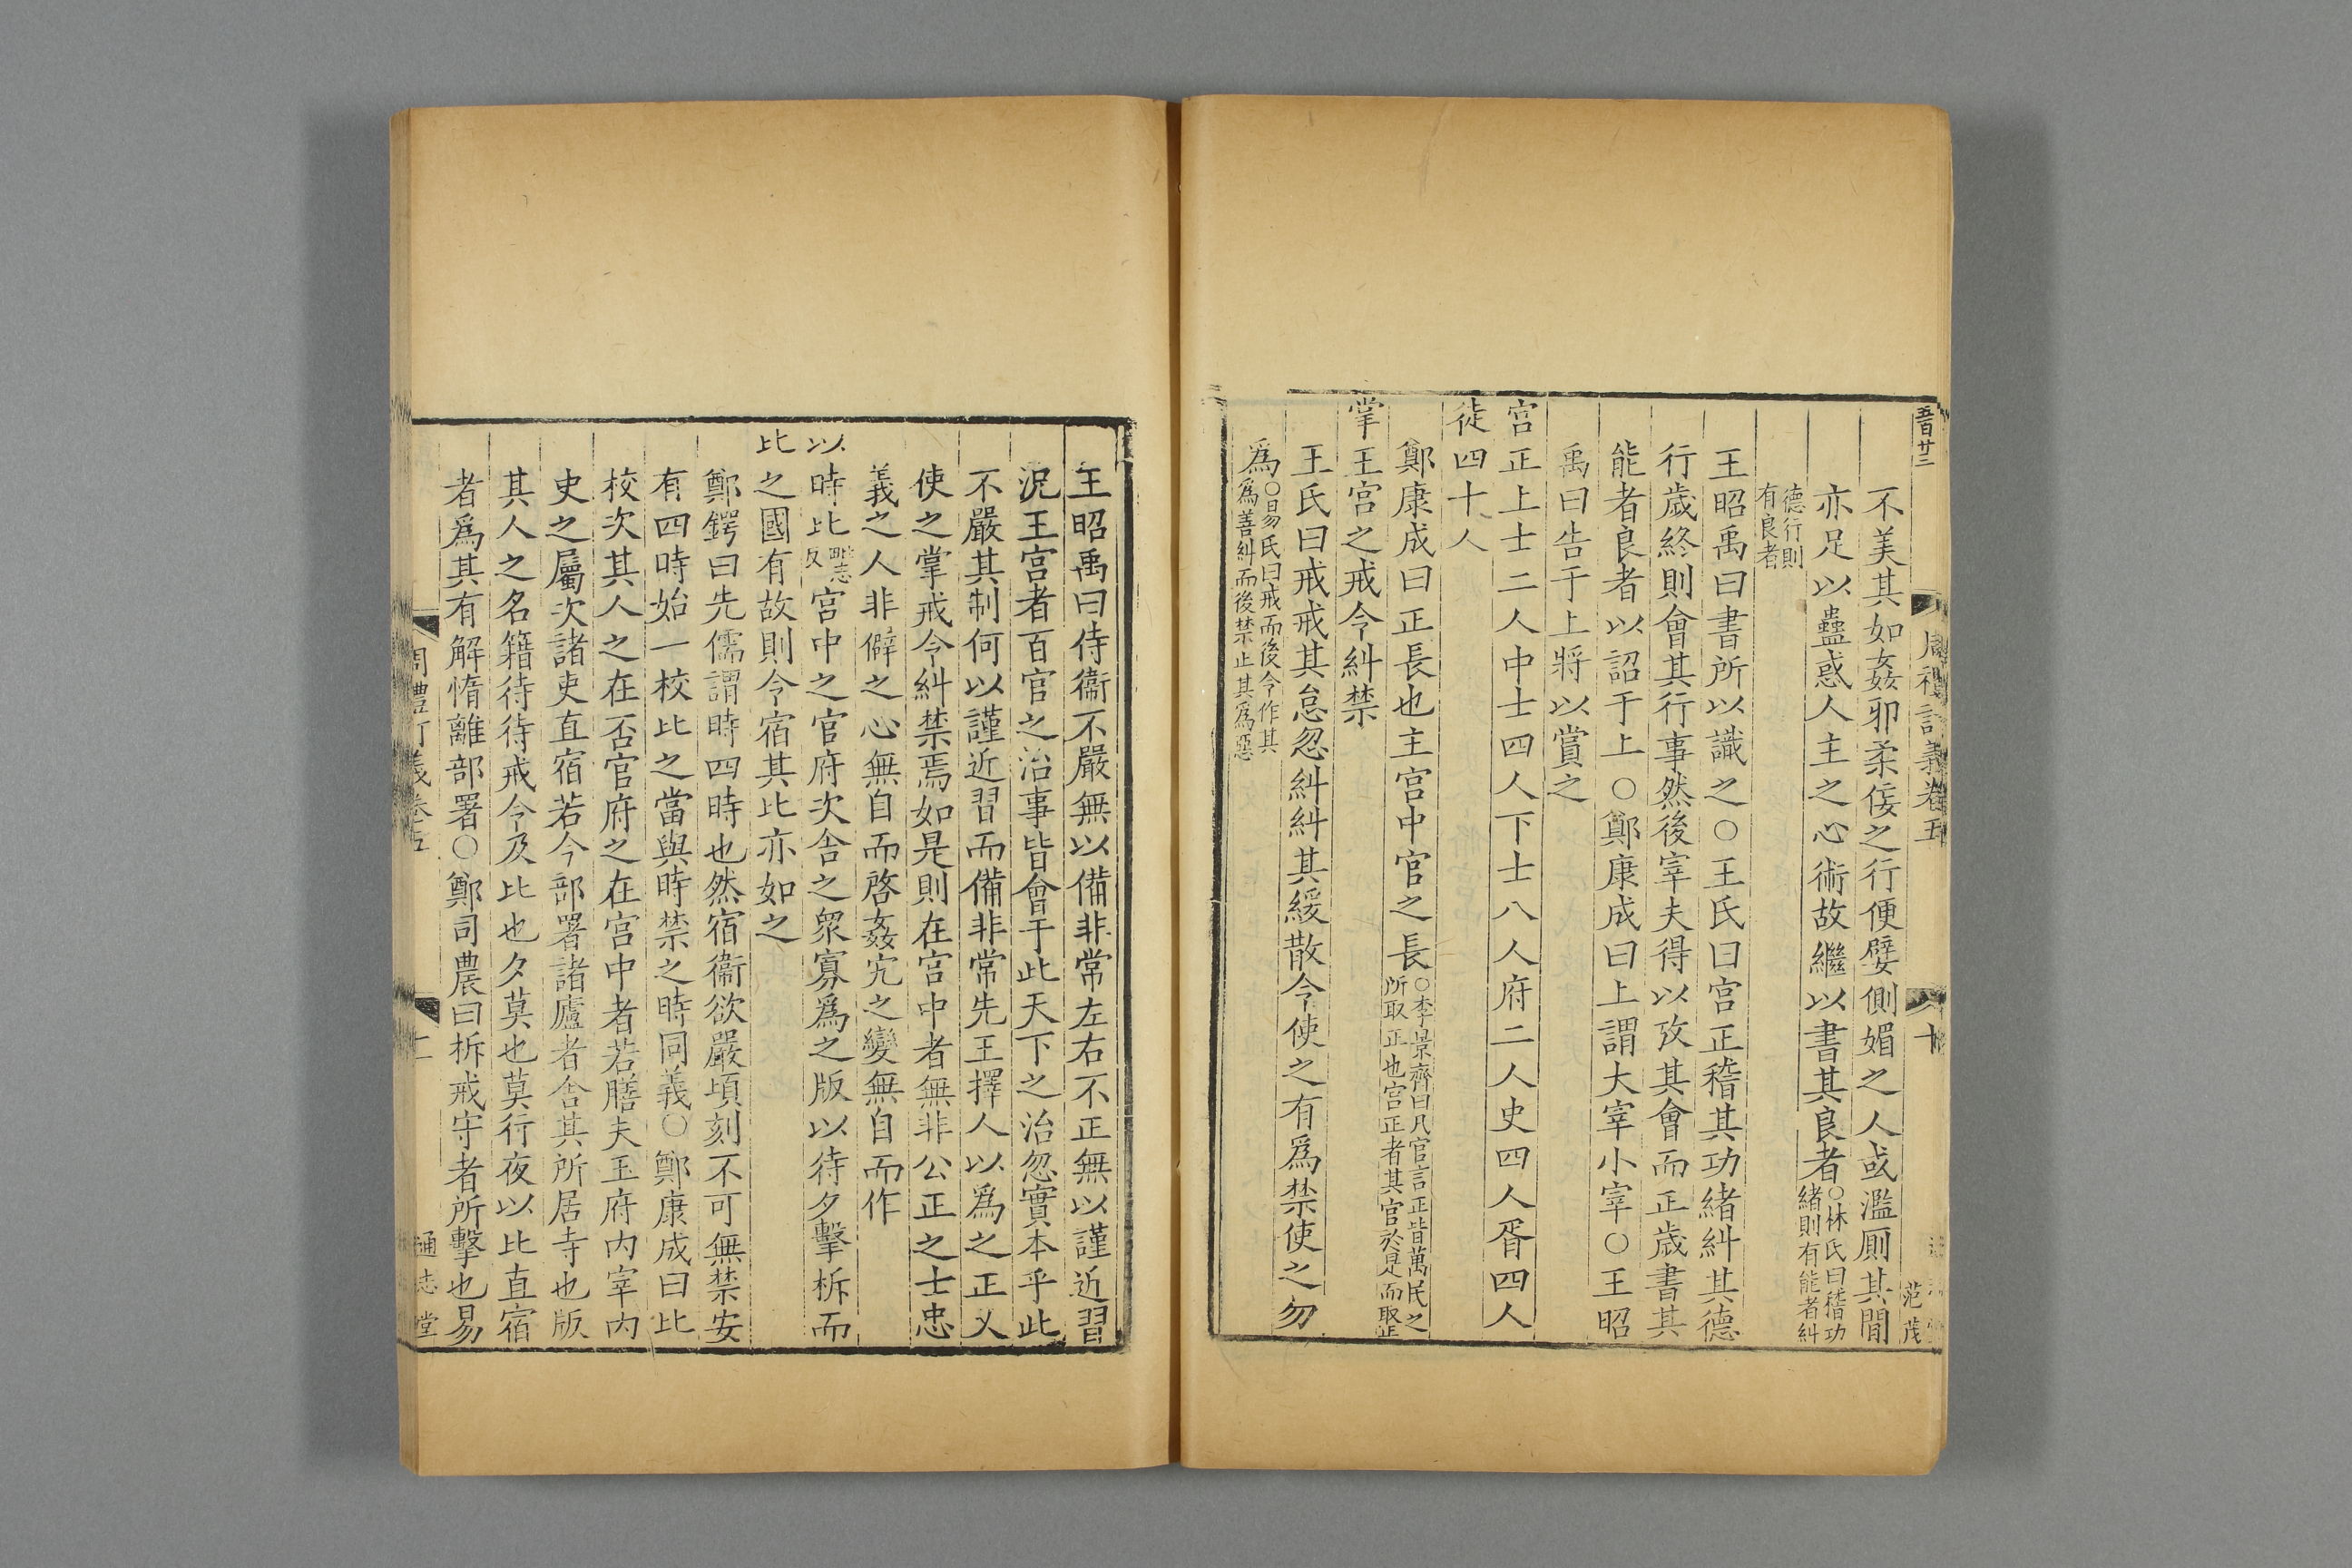 五百廿三
周禮訂義卷五
十
范茂
不美其如姦邪柔佞之行便嬖側媚之人或濫厠其間
亦足以蠱惑人主之心術故繼以書其良者○林氏曰稽功緒則有能者糾
德行則有良者
王昭禹曰書所以識之○王氏曰宫正稽其功緒糾其德
行歲終則會其行事然後宰夫得以攷其會而正歲書其
能者良者以詔于上○鄭康成曰上謂大宰小宰○王昭
禹曰告于上將以賞之
宫正上士二人中士四人下士八人府二人史四人胥四人
徒四十人
鄭康成曰正長也主宫中官之長○李景齊曰凡官言正皆萬民之所取正也宫正者其官於是而取正
掌王宫之戒令糾禁
王氏曰戒戒其怠忽糾糾其緩散令使之有爲禁使之勿
爲○易氏曰戒而後令作其爲善糾而後禁止其爲惡
王昭禹曰侍衞不嚴無以備非常左右不正無以謹近習
況王宫者百官之治事皆會于此天下之治忽實本乎此
不嚴其制何以謹近習而備非常先王擇人以爲之正又
使之掌戒令糾禁焉如是則在宫中者無非公正之士忠
義之人非僻之心無自而啓姦宄之變無自而作
以時比毗志反宫中之官府次舍之衆寡爲之版以待夕擊柝而
比之國有故則令宿其比亦如之
鄭鍔曰先儒謂時四時也然宿衞欲嚴頃刻不可無禁安
有四時始一校比之當與時禁之時同義○鄭康成曰比
校次其人之在否官府之在宫中者若膳夫玉府内宰内
史之屬次諸吏直宿若今部署諸廬者舍其所居寺也版
其人之名籍待待戒令及比也夕莫也莫行夜以比直宿
者爲其有解惰離部署○鄭司農曰柝戒守者所擊也易
周禮訂義卷五
二
通志堂